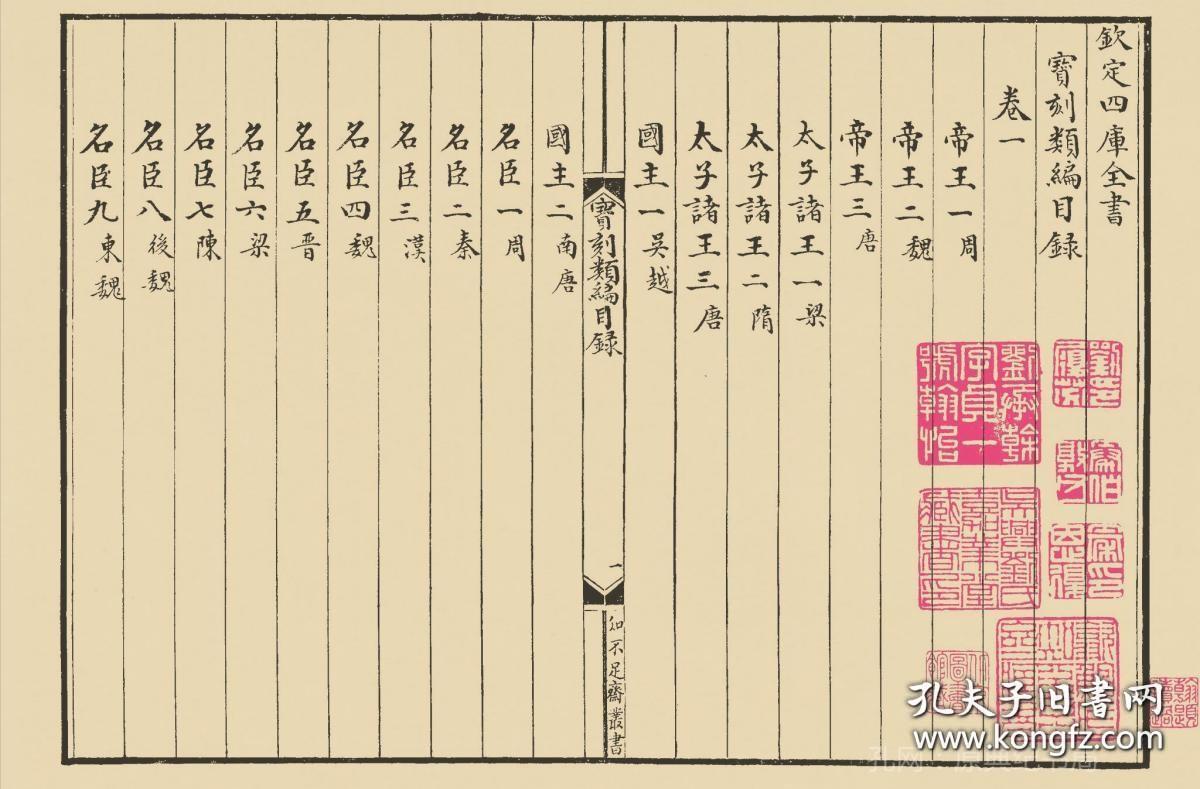 欽定四庫全書
寶刻類編目録
卷一
帝王一周
帝王二魏
帝王三唐
太子諸王一梁
太子諸王二隋
太子諸王三唐
國主一吴越
寶刻類編目録
一
知不足齋叢書
國主二南唐
名臣一周
名臣二秦
名臣三漢
名臣四魏
名臣五晋
名臣六梁
名臣七陳
名臣八後魏
名臣九東魏
劉承幹
字貞一
號翰怡
吴興劉氏
嘉業堂
藏書印
孔夫子旧書网
www.kongfz.com